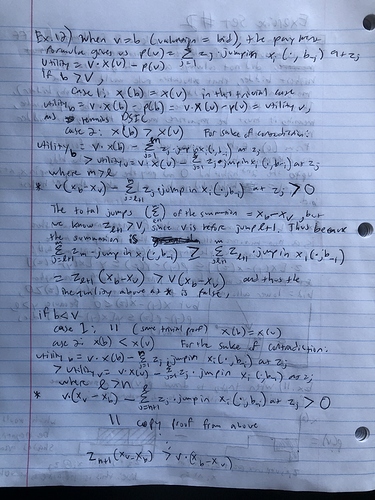 Ex. 12) When v=b (valuation = bid), the payment
formula gives us p(v) = Σ_{j=1}^{l} z_j · jump in x_i(·, b_-i) at z_j
utility = v · x(v) - p(v)
If b > V,
case 1: x(b) = x(v) in that trivial case
utility_b = v · x(b) - p(b) = v · x(v) - p(v) = utility_v,
remains DSIC
case 2: x(b) > x(v) For sake of contradiction:
utility_b = v · x(b) - Σ_{j=1}^{m} z_j · jump in x_i(·, b_-i) at z_j
> utility_v = v · x(v) - Σ_{j=1}^{l} z_j · jump in x_i(·, b_-i) at z_j
where m > l
* v(x_b - x_v) - Σ_{j=l+1}^{m} z_j jump in x_i(·, b_-i) at z_j > 0
The total jumps (Σ) of the summation = x_b - x_v, but
we know z_{l+1} > V, since v is before jump l+1. Thus because
the summation is
Σ_{j=l+1}^{m} z_m · jump in x_i(·, b_-i) ≥ Σ_{j=l+1}^{m} z_{l+1} · jump in x_i(·, b_-i)
= z_{l+1}(x_b - x_v) > v(x_b - x_v) and thus the
inequality above at * is false,
if b < v
case 1: 11 (same trivial proof) x(b) = x(v)
case 2: x(b) < x(v) For the sake of contradiction:
utility_b = v · x(b) - Σ_{j=1}^{n} z_j · jump in x_i(·, b_-i) at z_j
> utility_v = v · x(v) - Σ_{j=1}^{l} z_j · jump in x_i(·, b_-i) at z_j
where l > n
* v(x_v - x_b) - Σ_{j=n+1}^{l} z_j · jump in x_i(·, b_-i) at z_j > 0
11 copy proof from above
z_{n+1}(x_v - x_v) > v · (x_b - x_v)